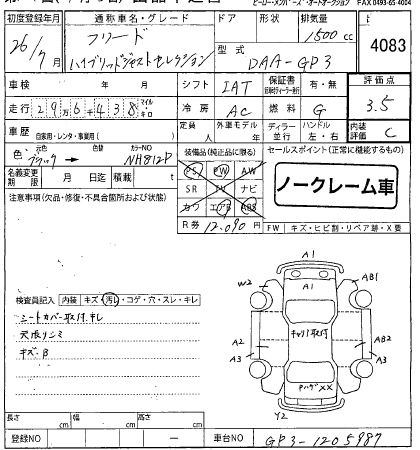 ビーローメンバーズ・オートオークション FAX 0493-65-4004
初度登録年月 通称車名・グレード ドア 形状 排気量
26/7月 フリード 1500 cc
ハイブリッドジャストセレクション 型式 DAA-GP3
4083
車検 シフト IAT 保証書 有・無 評価点
走行 296438 マイル キロ 冷房 AC 燃料 G 3.5
車歴 自家用・レンタ・事業用( ) 定員 人 外車モデル 年 ディーラー 並行 ハンドル 左・右 内装評価 C
色 元色 ブラック → 色替 カラーNO NH812P
装備品(純正品に限る) セールスポイント(正常に機能するもの)
名義変更期限 月 日迄 積載 t
PS PW AW
SR TV ナビ
カワ エアB ABS
ノークレーム車
注意事項(欠品・修復・不具合箇所および状態)
R券 12,090 円
FW キズ・ヒビ割・リペア跡・X要
検査員記入 内装 キズ・汚れ・コゲ・穴・スレ・キレ
シートカバー取付.キレ
天張りシミ
キズ.B
A1
A1
W2
AB1
キャリア取付
A2
AB2
A3
A3
PハゲXX
Y2
長さ cm 幅 cm 高さ cm
登録NO — 車台NO GP3-1205987